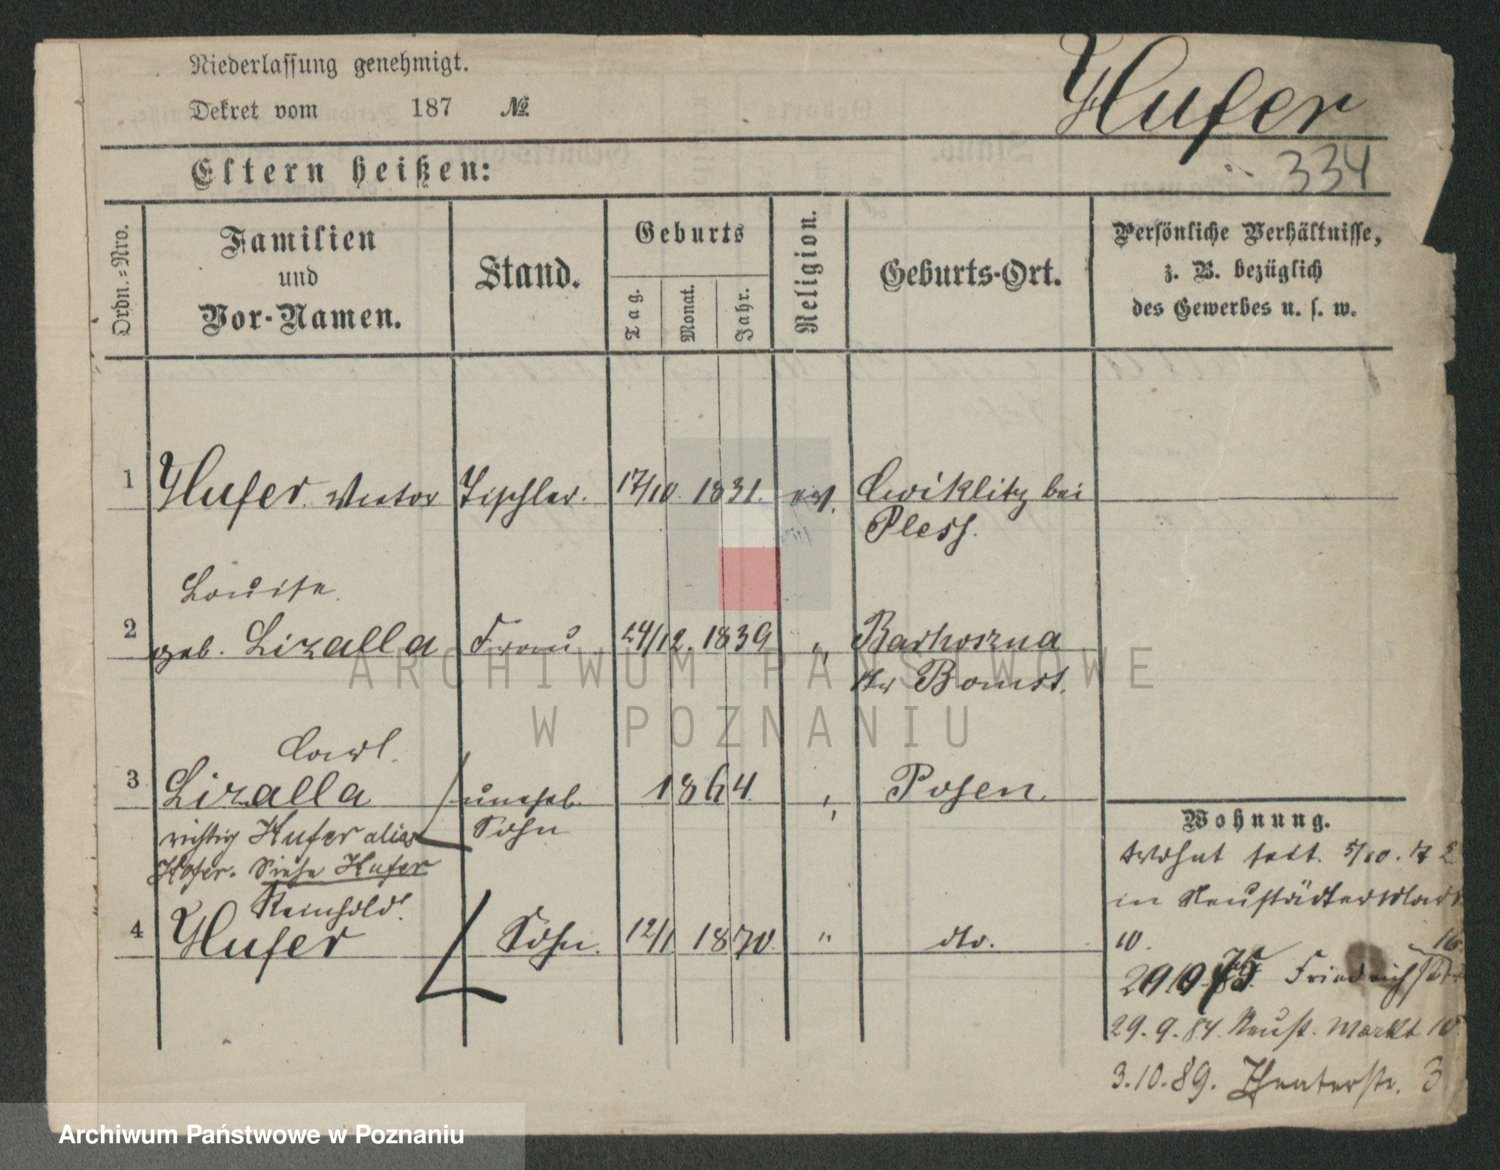 Niederlassung genehmigt.
Dekret vom 187 №
Hufer
334
Eltern heißen:
Ordn.-Nro.
Familien
und
Vor-Namen.
Stand.
Geburts
Tag.
Monat.
Jahr.
Religion.
Geburts-Ort.
Persönliche Verhältnisse,
z. B. bezüglich
des Gewerbes u. s. w.
1 Hufer Victor Tischler. 17/10. 1831. ev. Cwiklitz bei
Pless.
Louise
2 geb. Lizalla Frau 24/12. 1839 " Barkoszna
Kr Bomst.
Carl.
3 Lizalla unehel. 1864 " Posen.
richtig Hufer alias Sohn
Hofer. Siehe Hufer
Reinhold.
4 Hufer Sohn. 12/1 1870 " do.
Wohnung.
Wohnt seit. 5/10. 72
in Neustädter
10.
29 9 75 Friedrichstr 16
29.9.84. Neust. Markt 10
3.10.89. Theaterstr. 3
ARCHIWUM PAŃSTWOWE
W POZNANIU
Archiwum Państwowe w Poznaniu